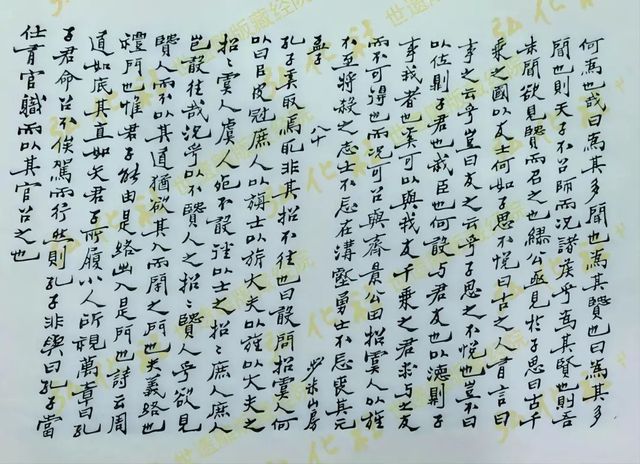 何為也或曰為其多聞也為其賢也曰為其多
聞也則天子不召師而況諸侯乎為其賢也則吾
未聞欲見賢而召之繆公亟見於子思曰古千
乘之國以友士何如子思不悅曰古之人有言曰
事之云乎豈曰友之云乎子思之不悅也豈不曰
以位則子君也我臣也何敢與君友也以德則子
事我者也奚可以與我友千乘之君求與之友
而不可得也而況可召與齊景公田招虞人以旌
不至將殺之志士不忘在溝壑勇士不忘喪其元
孟子 八十 山房
孔子奚取焉取非其招不往也曰敢問招虞人何
以曰以皮冠庶人以旃士以旂大夫以旌以大夫之
招〻虞人虞人死不敢往以士之招〻庶人庶人
豈敢往哉況乎以不賢人之招〻賢人乎欲見
賢人而不以其道猶欲其入而閉之門也夫義路也
禮門也惟君子能由是路出入是門也詩云周
道如底其直如矢君子所履小人所視萬章曰孔
子君命召不俟駕而行然則孔子非與曰孔子當
仕有官職而以其官召之也
世遺雕版藏經院